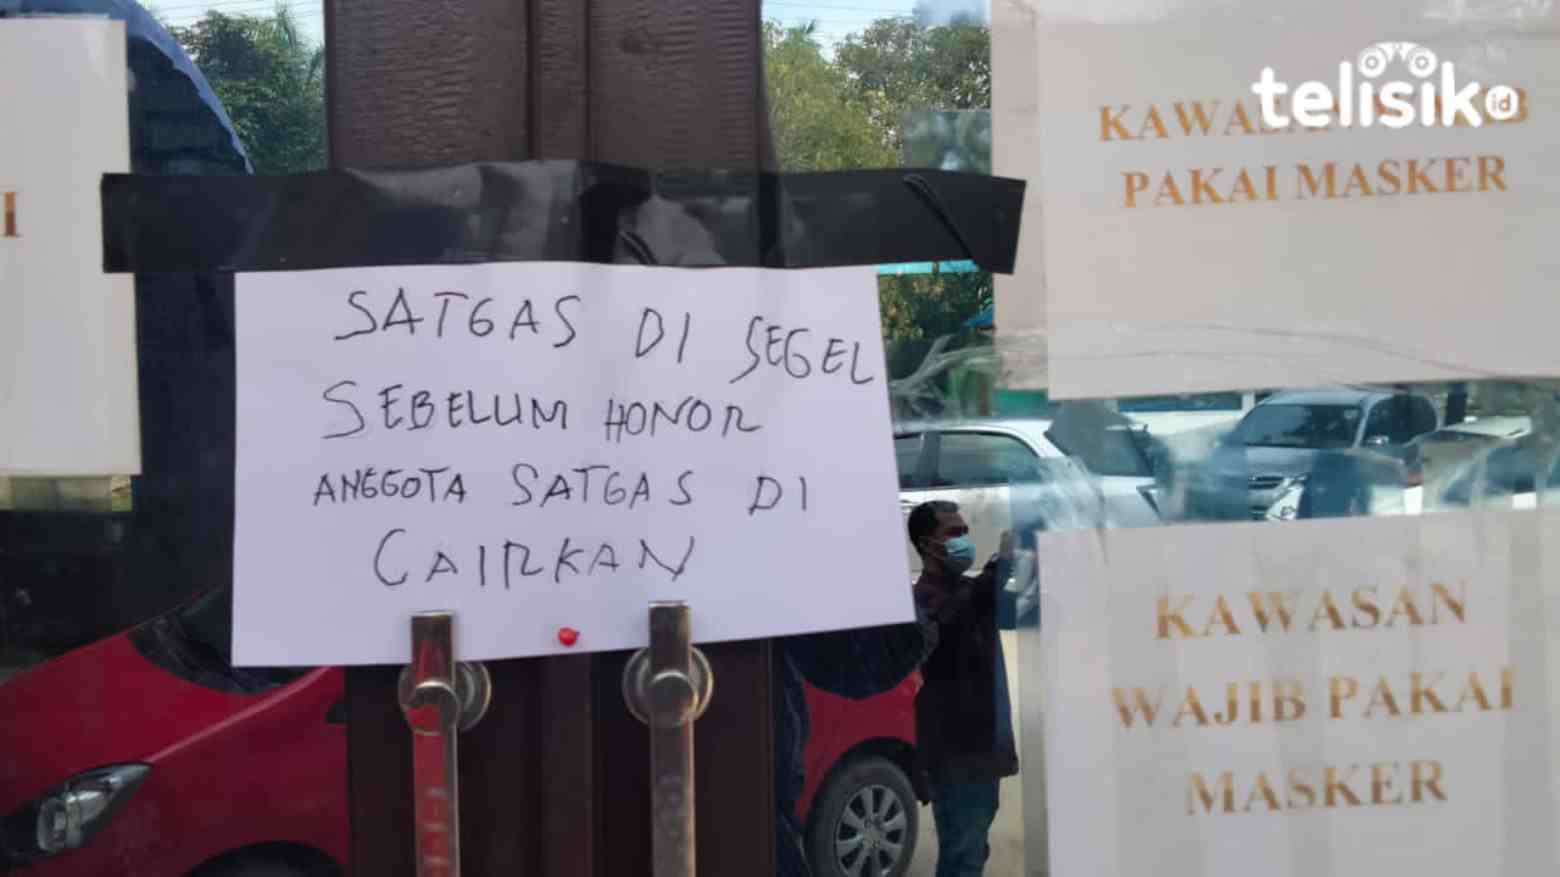 telisik id
KAWASAN WAJIB
PAKAI MASKER
I
SATGAS DI SEGEL
SEBELUM HONOR
ANGGOTA SATGAS DI
CAIRKAN
KAWASAN
WAJIB PAKAI
MASKER